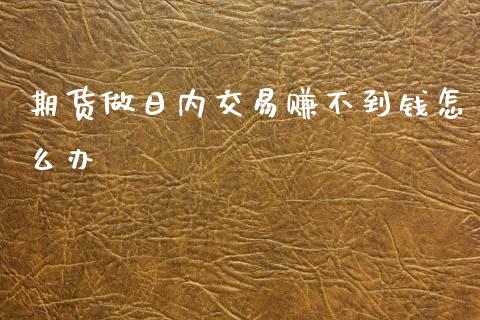 期货做日内交易赚不到钱怎
么办